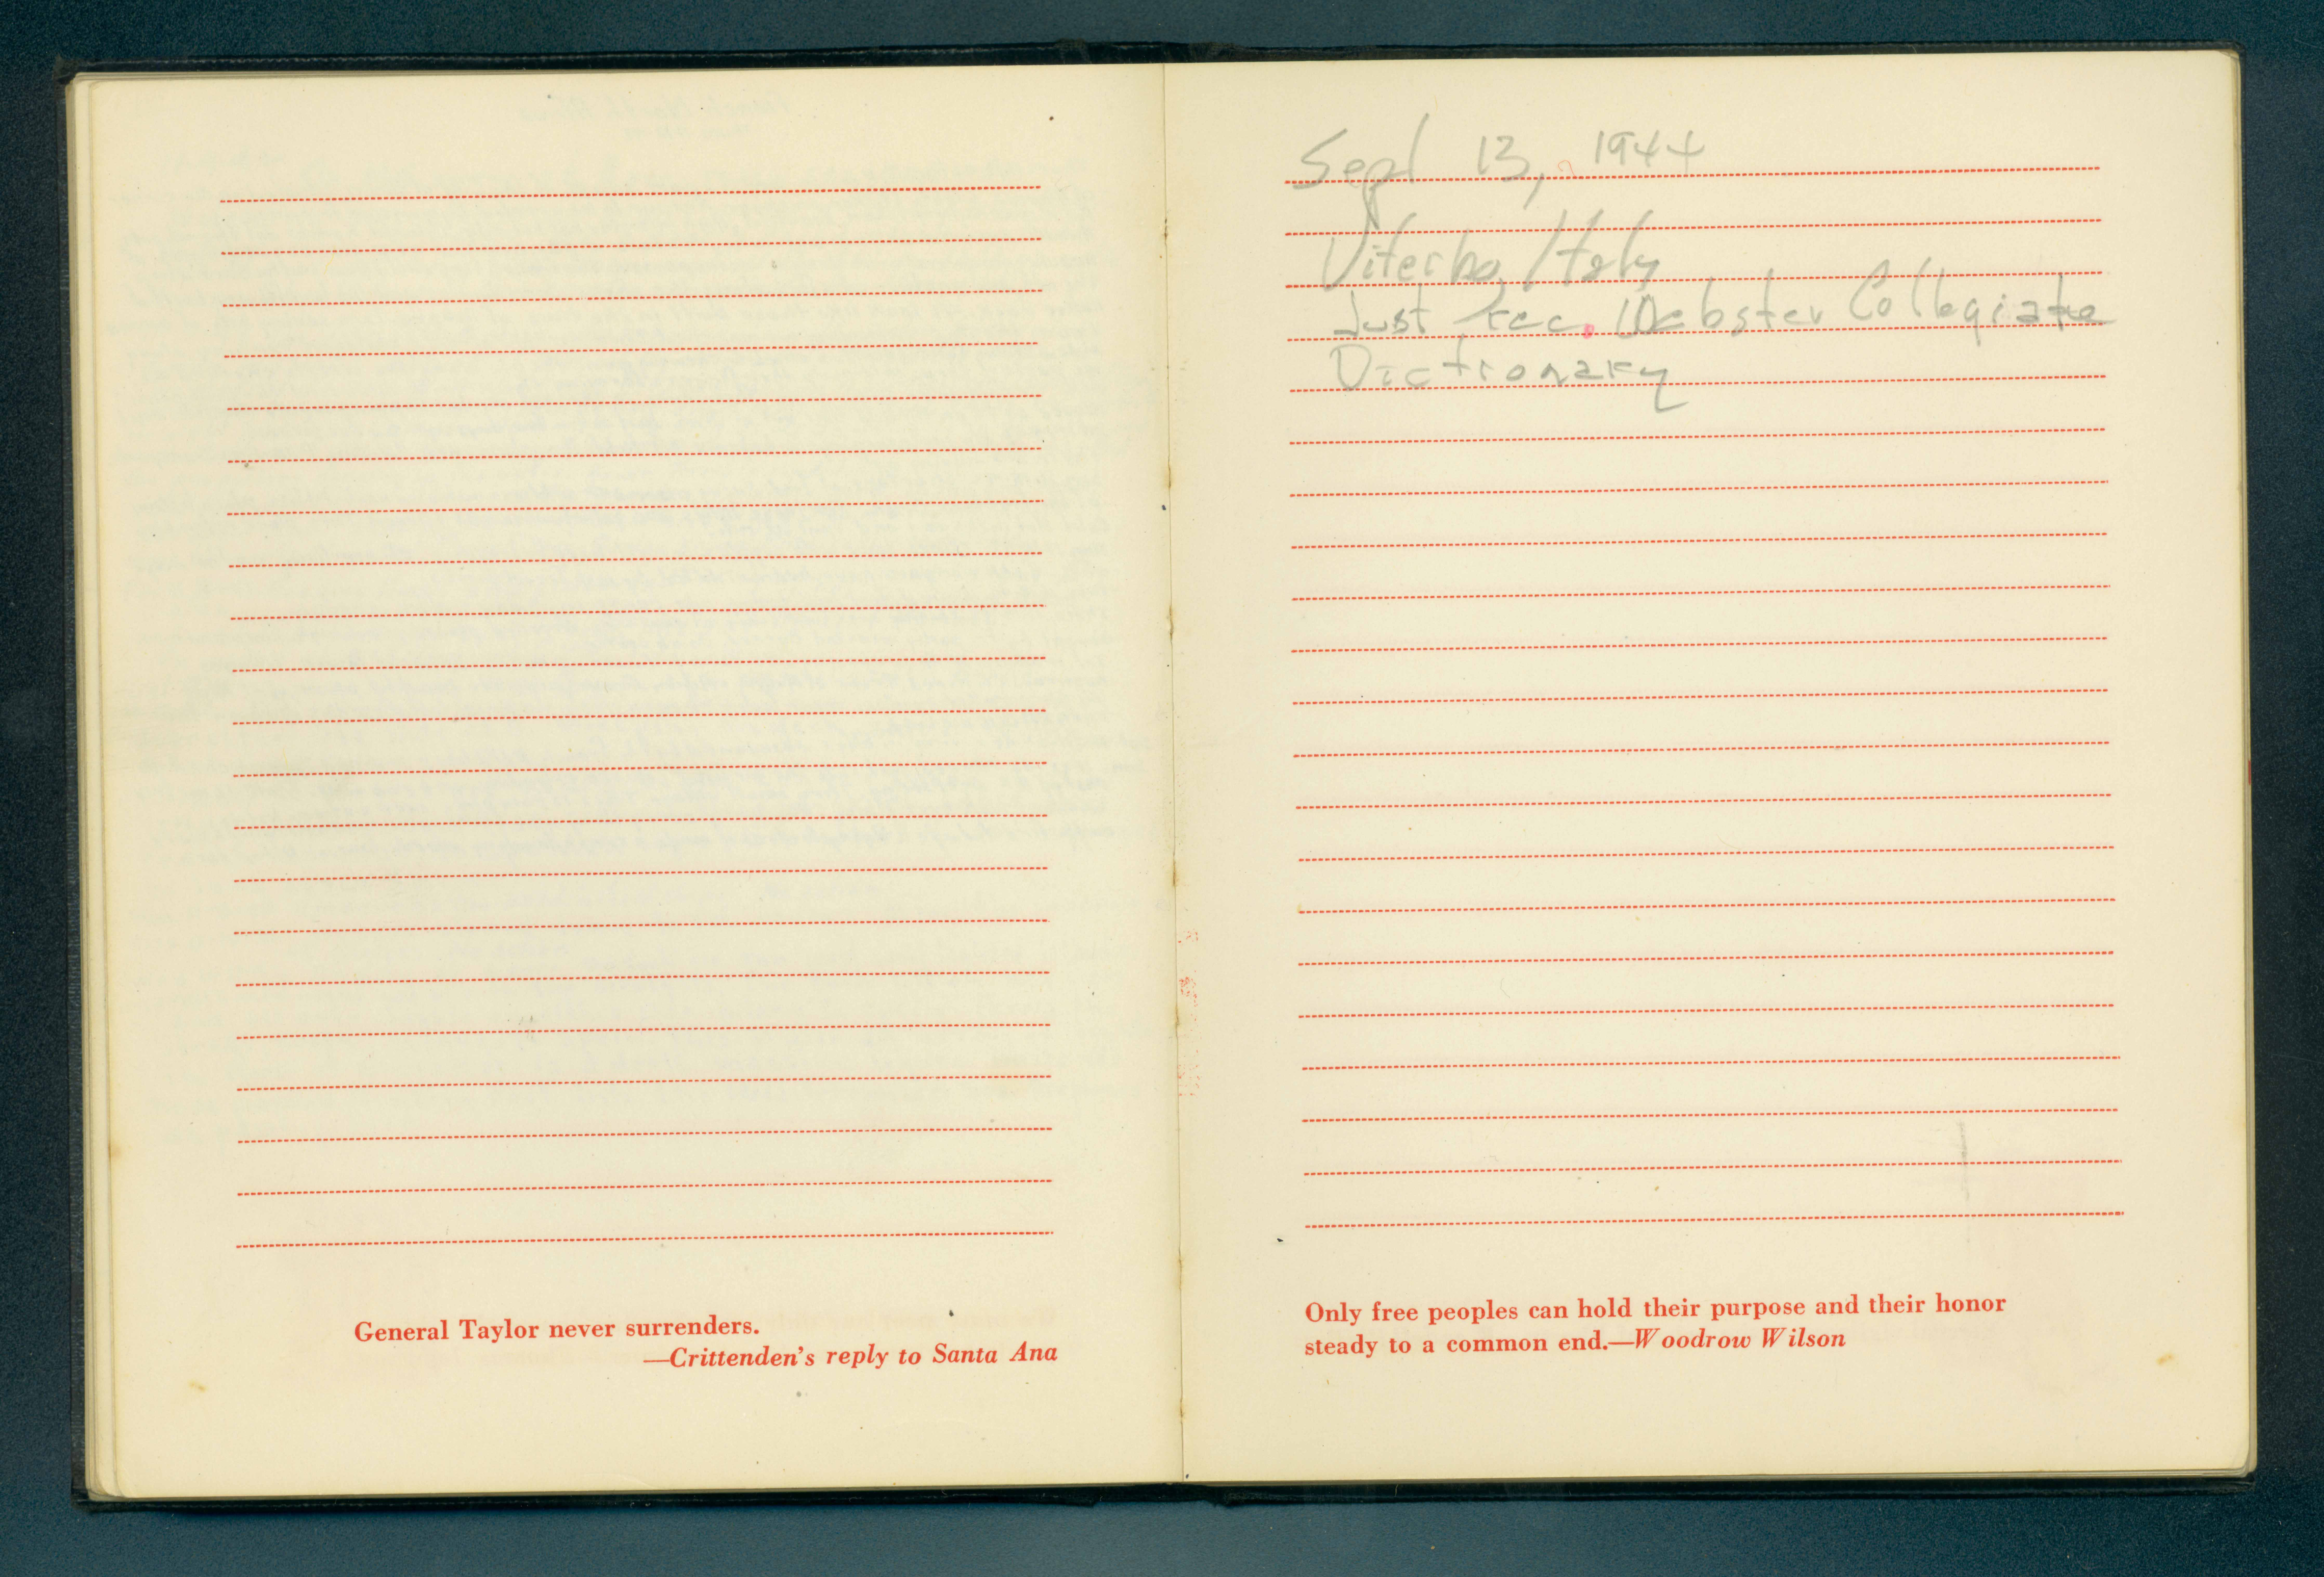 General Taylor never surrenders.
—Crittenden's reply to Santa Ana
Sept 13, 1944
Viterbo, Italy
Just rec. Webster Collegiate
Dictionary
Only free peoples can hold their purpose and their honor
steady to a common end.—Woodrow Wilson